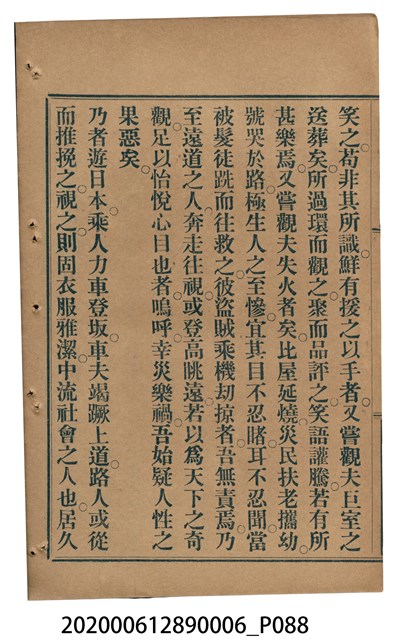 笑之苟非其所識鮮有援之以手者又嘗觀夫巨室之
送葬矣所過環而觀之聚而品評之笑語讙騰若有所
甚樂焉又嘗觀夫失火者矣比屋延燒災民扶老攜幼
號哭於路極生人之至慘宜其目不忍睹耳不忍聞當
被髮徒跣而往救之彼盜賊乘機刧掠者吾無責焉乃
至遠道之人奔走往視或登高眺遠若以爲天下之奇
觀足以怡悅心目也者嗚呼幸災樂禍吾始疑人性之
果惡矣
乃者遊日本乘人力車登坂車夫竭蹶上道路人或從
而推挽之視之則固衣服雅潔中流社會之人也居久
202000612890006_P088